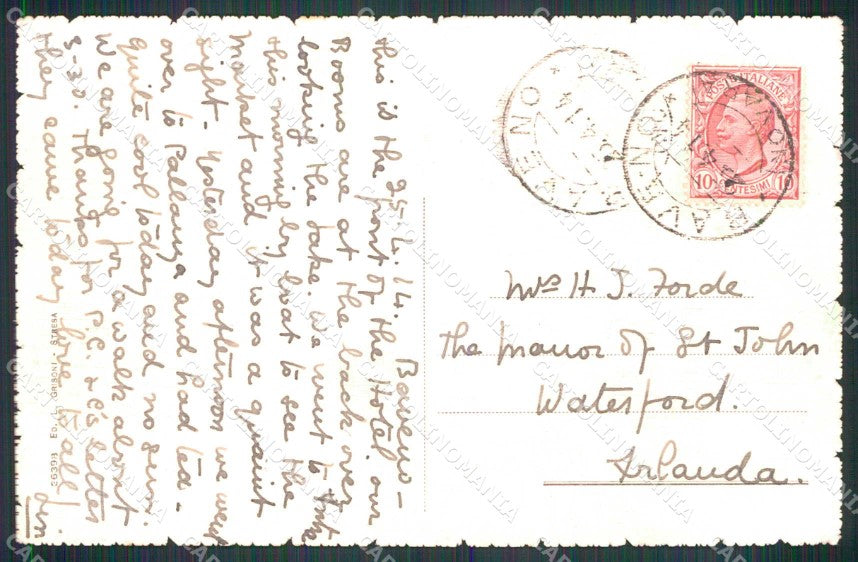 25.4.14. Baveno-
this is the front of the Hotel. our
Rooms are at the back over
looking the Lake. We went to Intra
this morning by boat to see the
Market and it was a quaint
sight. Yesterday afternoon we went
over to Pallanza and had tea.
quite cool today and no sun.
We are going for a walk about
3-30. Thanks for P.C. & E's letter
they came today love to all
26398 Ed. A. GRISONI - STRESA
BAVENO
14
POSTE ITALIANE
10 CENTESIMI 10
BAVENO
NOVARA
Mrs H J. Forde
The Manor of St John
Waterford.
Irlanda.
CARTOLINOMANIA